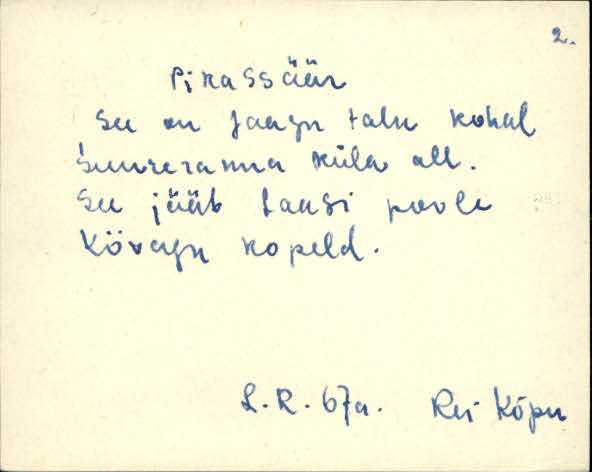 2.
Pikassäär
See on Jaagu talu kohal
Suureranna küla all.
See jääb Laasi poole
Kõvagu kopeld.
L.R. 67a. Rei Kõpu